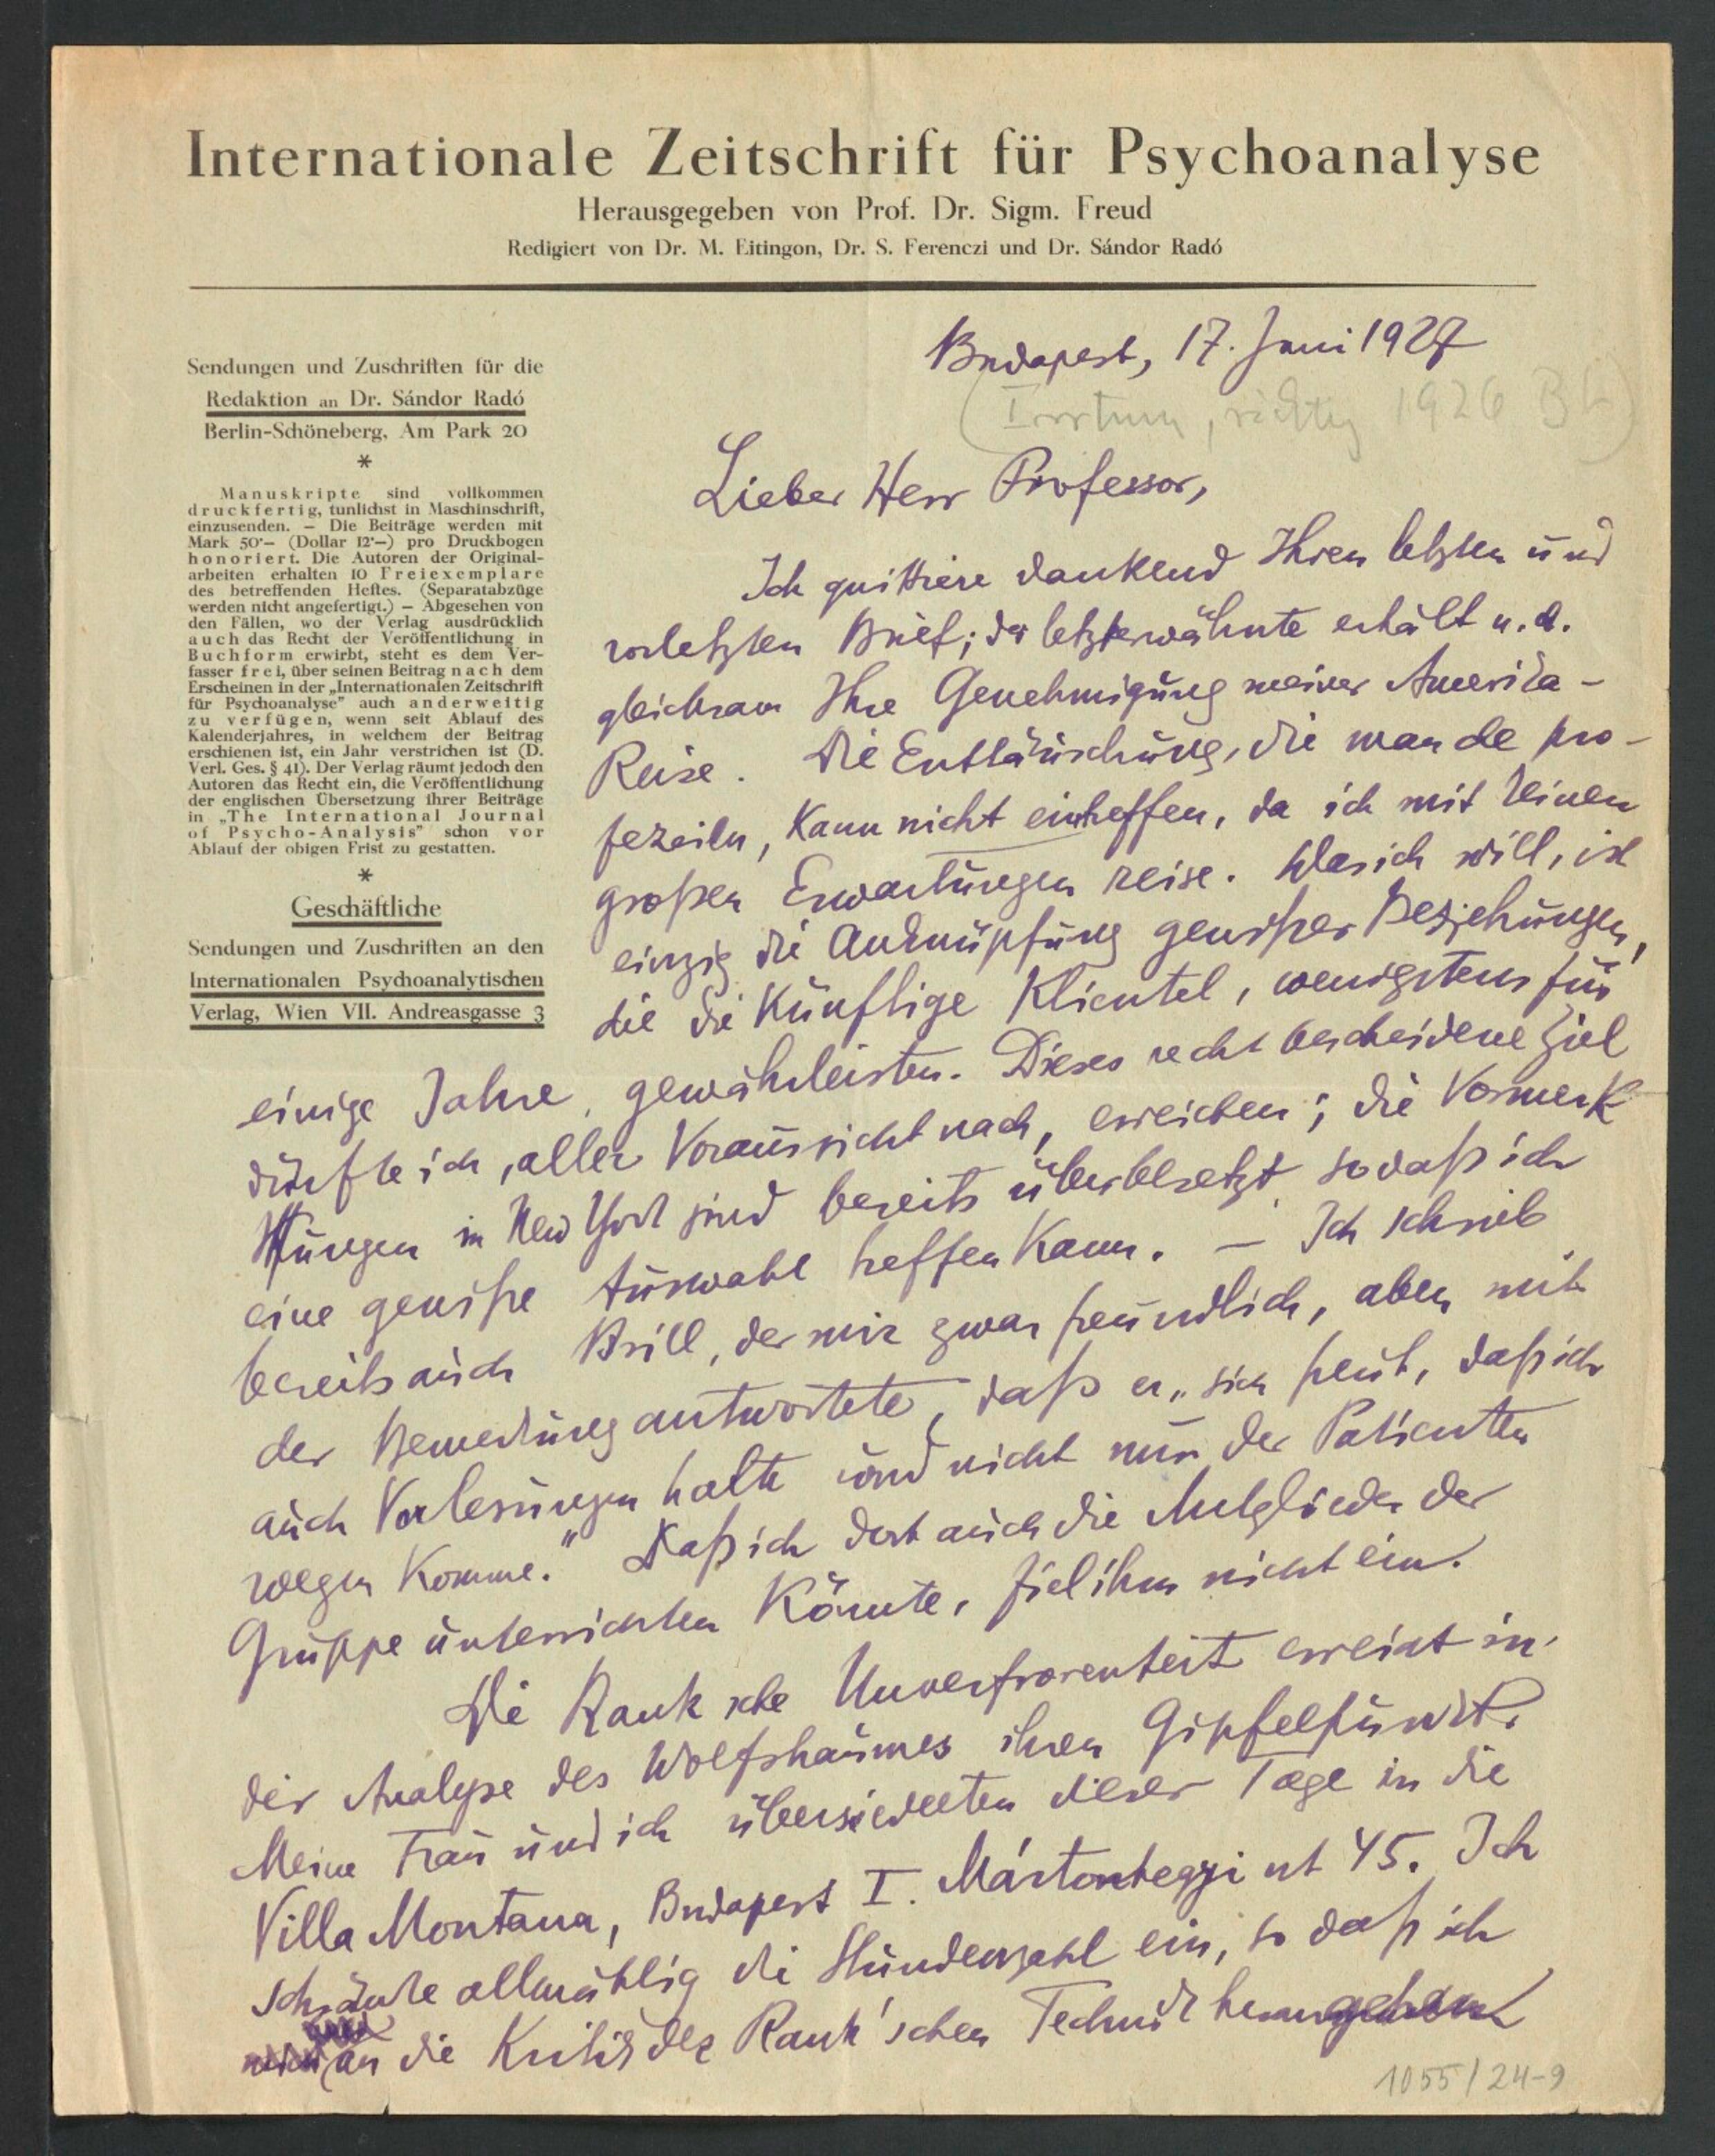 Internationale Zeitschrift für Psychoanalyse
Herausgegeben von Prof. Dr. Sigm. Freud
Redigiert von Dr. M. Eitingon, Dr. S. Ferenczi und Dr. Sándor Radó
Sendungen und Zuschriften für die
Redaktion an Dr. Sándor Radó
Berlin-Schöneberg, Am Park 20
*
Manuskripte sind vollkommen
druckfertig, tunlichst in Maschinschrift,
einzusenden. — Die Beiträge werden mit
Mark 50·— (Dollar 12·—) pro Druckbogen
honoriert. Die Autoren der Original-
arbeiten erhalten 10 Freiexemplare
des betreffenden Heftes. (Separatabzüge
werden nicht angefertigt.) — Abgesehen von
den Fällen, wo der Verlag ausdrücklich
auch das Recht der Veröffentlichung in
Buchform erwirbt, steht es dem Ver-
fasser frei, über seinen Beitrag nach dem
Erscheinen in der „Internationalen Zeitschrift
für Psychoanalyse" auch anderweitig
zu verfügen, wenn seit Ablauf des
Kalenderjahres, in welchem der Beitrag
erschienen ist, ein Jahr verstrichen ist (D.
Verl. Ges. § 41). Der Verlag räumt jedoch den
Autoren das Recht ein, die Veröffentlichung
der englischen Übersetzung ihrer Beiträge
in „The International Journal
of Psycho-Analysis" schon vor
Ablauf der obigen Frist zu gestatten.
*
Geschäftliche
Sendungen und Zuschriften an den
Internationalen Psychoanalytischen
Verlag, Wien VII. Andreasgasse 3
Budapest, 17. Juni 1927
(Irrtum, richtig 1926
Lieber Herr Professor,
Ich quittiere dankend Ihren letzten und
vorletzten Brief; der letzterwähnte erhält u. a.
gleichsam Ihre Genehmigung meiner Amerika-
Reise. Die Enttäuschung, die manche pro-
fezeien, kann nicht eintreffen, da ich mit keinen
großen Erwartungen reise. Was ich will, ist
einzig die Anknüpfung gewißer Beziehungen,
die die künftige Klientel, wenigstens für
einige Jahre, gewährleisten. Dieses recht bescheidene Ziel
dürfte ich, aller Voraussicht nach, erreichen; die Vormerk
ungen in New York sind bereits überbesetzt, sodaß ich
eine gewiße Auswahl treffen kann. — Ich schrieb
bereits auch Brill, der mir zwar freundlich, aber mit
der Bemerkung antwortete, daß er „sich freut, daß ich
auch Vorlesungen halte und nicht nur der Patienten
wegen komme." Daß ich dort auch die Mitglieder der
Gruppe unterrichten könnte, fiel ihm nicht ein.
Die Rank'sche Unverfrorenheit erreicht in
der Analyse des Wolfstraumes ihren Gipfelpunkt.
Meine Frau und ich übersiedelten dieser Tage in die
Villa Montana, Budapest I. Mártonhegyi ut 45. Ich
schränke allmählig die Stundenzahl ein, so daß ich
an die Kritik der Rank'schen Technik
1055/24-9